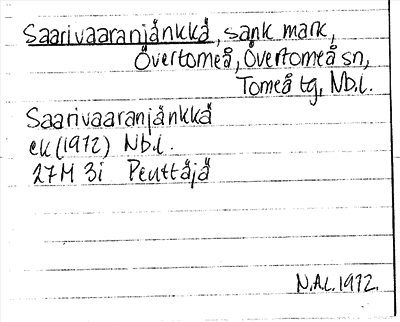 Saarivaaranjänkkä, sank mark,
Övertorneå, Övertorneå sn,
Torneå tg, Nb.l.
Saarivaaranjänkkä
ek (1972) Nb.l.
27M 3i Peuttäjä
N.A.L. 1972.